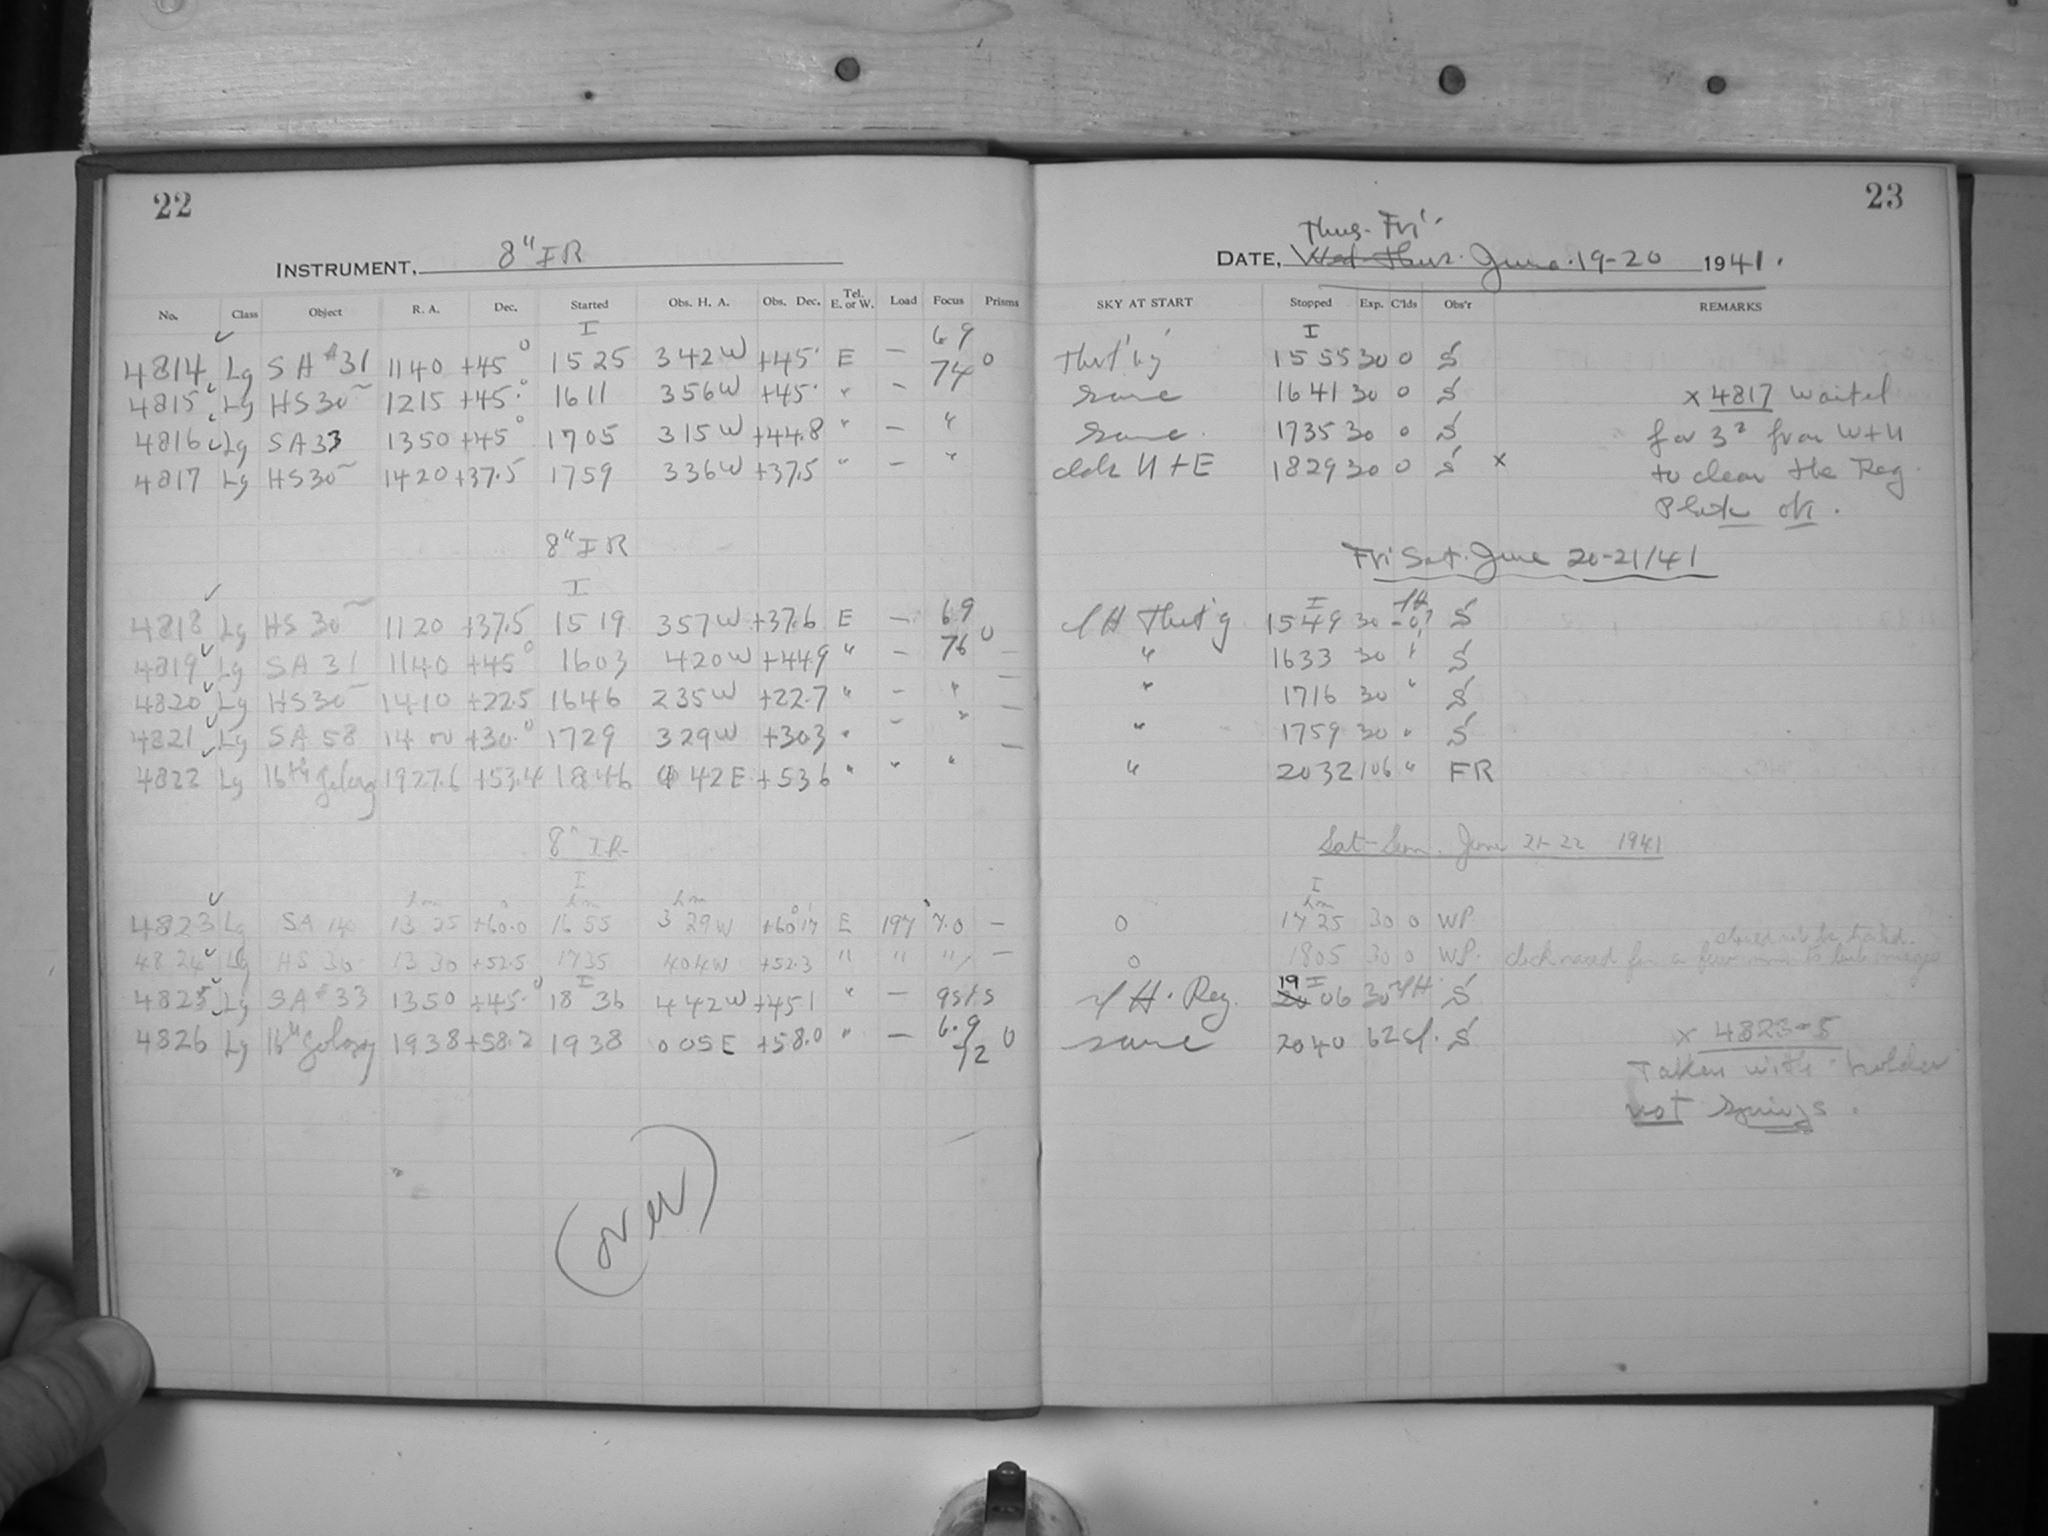 22
INSTRUMENT, 8" IR
No. Class Object R. A. Dec. Started Obs. H. A. Obs. Dec. Tel. E. or W. Load Focus Prisms
I
4814 Lg SA #31 1140 +45° 1525 342W +45° E — 69 74°
4815 Lg HS30 1215 +45° 1611 356W +45° " —
4816 Lg SA33 1350 +45° 1705 315W +44.8 " — "
4817 Lg HS30 1420 +37.5 1759 336W +37.5 " — "
8" IR
I
4818 Lg HS 30 1120 +37.5 1519 357W +37.6 E — 69
4819 Lg SA 31 1140 +45° 1603 420W +44.9 " — 76° —
4820 Lg HS30 1410 +22.5 1646 235W +22.7 " — " —
4821 Lg SA 58 1400 +30.° 1729 329W +303 " — " —
4822 Lg 16th Galaxy 1927.6 +53.4 1846 42E +536 " " " —
8" IR
I
hm ° hm hm ° '
4823 Lg SA 14 13 25 +60.0 16 55 3 29W +60 17 E 197 7.0 —
4824 Lg HS 30 13 30 +52.5 1735 404W +52.3 " " " —
I
4825 Lg SA #33 1350 +45.° 18 36 442W +451 " —
4826 Lg 16th Galaxy 1938 +58.2 1938 005E +58.0 " — 6.9 72 0
(over)
23
Thurs-Fri
DATE, Wed-Thur. June 19-20 1941.
SKY AT START Stopped Exp. C'lds Obs'r REMARKS
I
1555 30 0 S
same 1641 30 0 S x 4817 Waited
same 1735 30 0 S for 3² from W+N
clds N+E 1829 30 0 S x to clear the Reg.
Plate ok.
Fri Sat. June 20-21/41
I
1549 30 S
" 1633 30 S
" 1716 30 " S
" 1759 30 " S
" 2032 106 " FR
Sat-Sun. June 21-22 1941
I
hm
0 1725 30 0 WP
0 1805 30 0 WP. clock raced for a few
I
H. Reg. 19 20 06 30 H S
same 2040 62 S x 4823-5
Taken with holder
not springs.